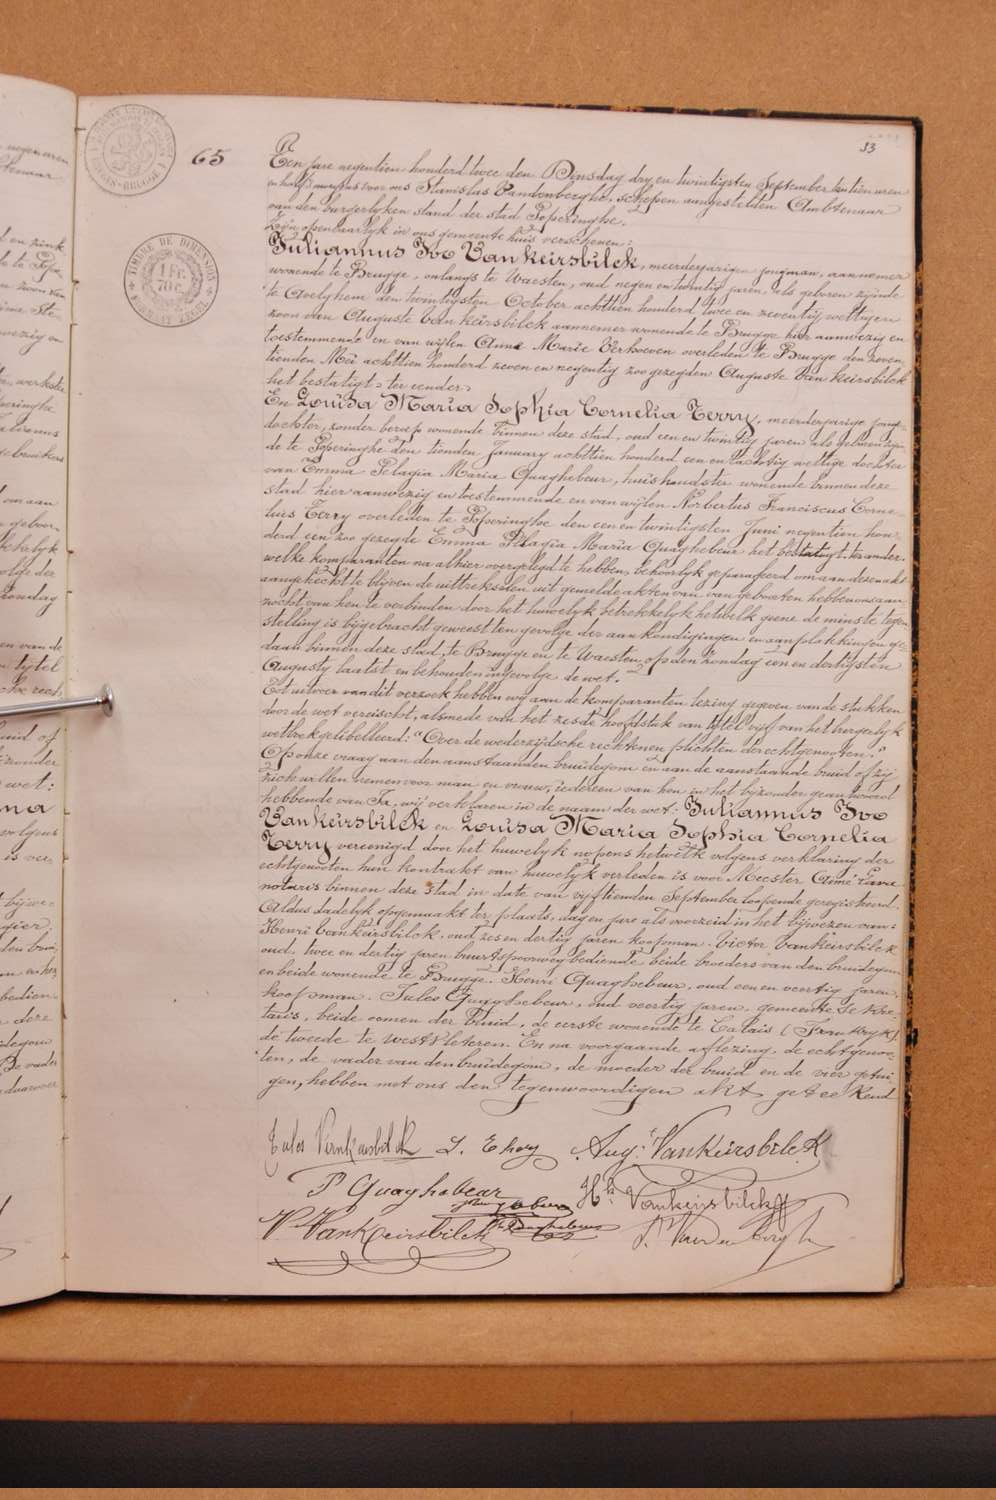 33
65
TIMBRE DE DIMENSION
1 Fr.
70 c.
Ten jare negentien honderd twee den Dinsdag dry en twintigsten September ten tien uren
en half 's morgens voor ons Stanislas Vandenberghe, schepen aangestelden Ambtenaar
van den burgerlyken stand der stad Poperinghe.
Zijn openbaarlyk in ons gemeente huis verschenen:
Juliannus Ivo Vankeirsbilck, meerderjarigen jongman, aannemer
wonende te Brugge, onlangs te Waesten, oud negen en twintig jaren, als geboren zijnde
te Avelghem den twintigsten October achttien honderd twee en zeventig wettigen
zoon van Auguste Vankeirsbilck aannemer wonende te Brugge hier aanwezig en
toestemmende en van wijlen Anna Marie Verhoeven overleden te Brugge den zeven
tienden Mei achttien honderd zeven en negentig zoo gezegden Auguste Vankeirsbilck
het bestatigt ter eender.
En Louisa Maria Sophia Cornelia Terry, meerderjarige jonge
dochter, zonder beroep wonende binnen deze stad, oud een en twintig jaren als geboren zijn
de te Poperinghe den tienden January achttien honderd een en tachtig wettige dochter
van Emma Pelagia Maria Quaghebeur, huishoudster wonende binnen deze
stad hier aanwezig en toestemmende en van wijlen Norbertus Franciscus Corne-
lius Terry overleden te Poperinghe den een en twintigsten Juni negentien hon-
derd een zoo gezegde Emma Pelagia Maria Quaghebeur het bestatigt ter ander.
welke komparanten na alhier overgelegd te hebben, behoorlyk geparafeerd om aan dezen akt
aangehecht te blijven de uittreksels uit gemelde akten van van geboorten hebben ons aan
zocht van hen te verbinden door het huwelyk betrekkelyk hetwelk geene de minste tegen
stelling is bijgebracht geweest ten gevolge der aankondigingen en aanplakkingen ge-
daan binnen deze stad, te Brugge en te Waesten, op den zondag een en dertigsten
Augusty laatst en behouden ingevolge de wet.
Tot uitvoer van dit verzoek hebben wij aan de komparanten lezing gegeven van de stukken
door de wet vereischt, alsmede van het zesde hoofdstuk van tytel vijf van het burgerlyk
wetboek gelibelleerd: "Over de wederzijdsche rechten en plichten der echtgenooten."
Op onze vraag aan den aanstaanden bruidegom en aan de aanstaande bruid of zij
zich willen nemen voor man en vrouw, iedereen van hen in het bijzonder geantwoord
hebbende van Ja, wij verklaren in de naam der wet: Juliannus Ivo
Vankeirsbilck en Louisa Maria Sophia Cornelia
Terry vereenigd door het huwelyk nopens hetwelk volgens verklaring der
echtgenooten hun kontrakt van huwelyk verleden is voor Meester Aimé Lava
notaris binnen deze stad in date van vijftienden September loopende geregistreerd.
Aldus dadelyk opgemaakt ter plaats, dag en jare als voorzeid in het bijwezen van:
Henri Vankeirsbilck, oud zes en dertig jaren koopman. Victor Vankeirsbilck
oud, twee en dertig jaren buurtspoorweg bediende beide broeders van den bruidegom
en beide wonende te Brugge. Henri Quaghebeur, oud een en veertig jaren,
koopman. Jules Quaghebeur, oud veertig jaren, gemeente Sekre-
taris, beide oomen der bruid, de eerste wonende te Calais (Frankryk)
de tweede te Westvleteren. En na voorgaande aflezing, de echtgenoo-
ten, de vader van den bruidegom, de moeder der bruid en de vier getui
gen, hebben met ons den tegenwoordigen akt geteekend
Jules Vankeirsbilck L. Terry Aug. Vankeirsbilck
P Quaghebeur Hri Vankeirsbilck
V Vankeirsbilck S. Vandenberghe